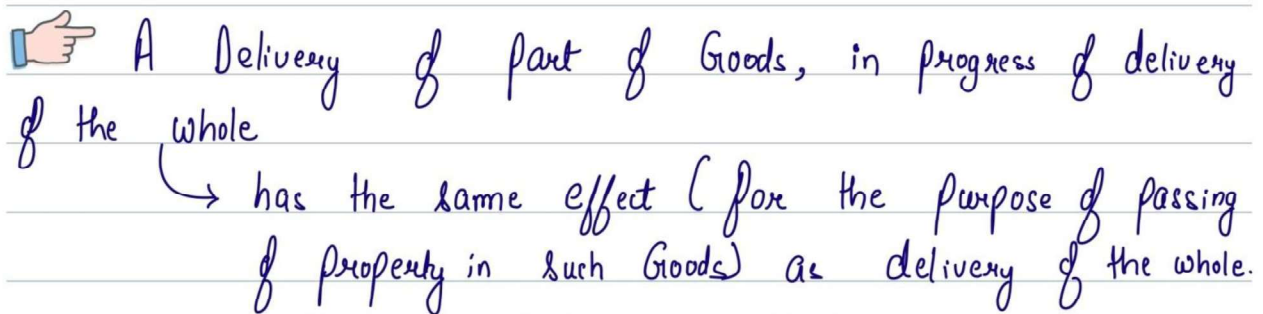 A Delivery of part of Goods, in progress of delivery
of the whole
→ has the same effect (for the purpose of passing
of property in such Goods) as delivery of the whole.